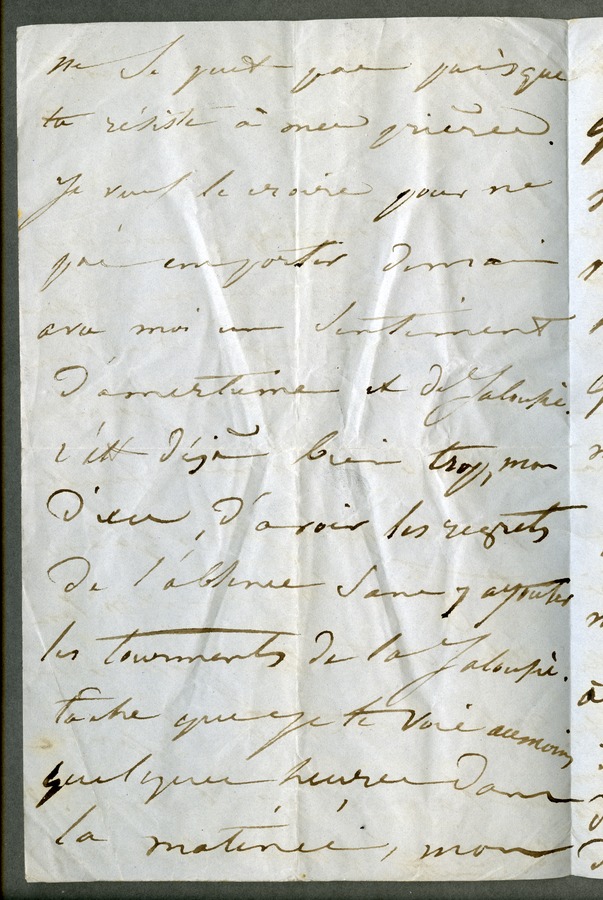 ne se peut pas puisque
tu résiste à mes prières.
Je veux le croire pour ne
pas emporter demain
avec moi un sentiment
d'amertume et de Jalousie.
c'est déjà bien trop, mon
Dieu, d'avoir les regrets
de l'absence sans y ajouter
les tourments de la Jalousie.
tache que je te voie au moins
quelques heures dans
la matinée, mon